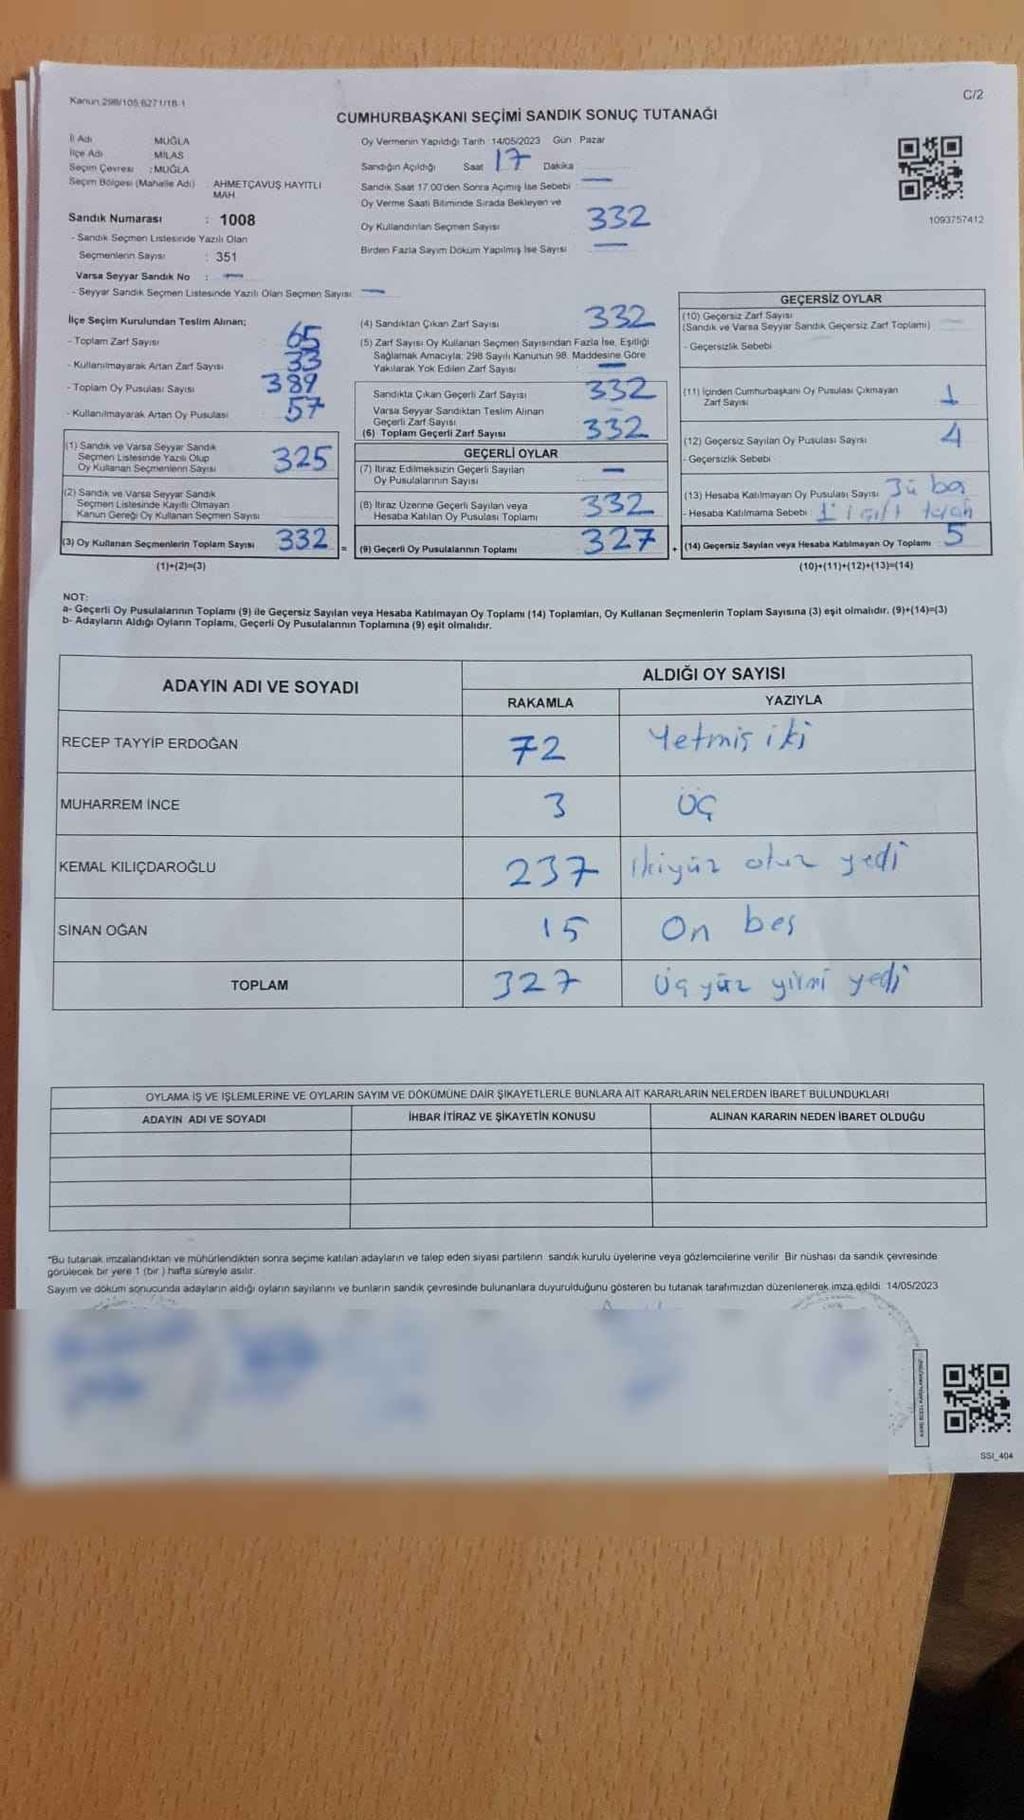 Kanun 298/105 6271/18-1
C/2
CUMHURBAŞKANI SEÇİMİ SANDIK SONUÇ TUTANAĞI
İl Adı MUĞLA
İlçe Adı MİLAS
Seçim Çevresi :MUĞLA
Seçim Bölgesi (Mahalle Adı) AHMETÇAVUŞ HAYITLI MAH
Sandık Numarası : 1008
- Sandık Seçmen Listesinde Yazılı Olan
Seçmenlerin Sayısı : 351
Varsa Seyyar Sandık No : —
- Seyyar Sandık Seçmen Listesinde Yazılı Olan Seçmen Sayısı —
Oy Vermenin Yapıldığı Tarih 14/05/2023 Gün Pazar
Sandığın Açıldığı Saat 17 Dakika
Sandık Saat 17.00'den Sonra Açımış İse Sebebi —
Oy Verme Saati Bitiminde Sırada Bekleyen ve
Oy Kullandırılan Seçmen Sayısı 332
Birden Fazla Sayım Döküm Yapılmış İse Sayısı —
1093757412
İlçe Seçim Kurulundan Teslim Alınan;
- Toplam Zarf Sayısı 65
- Kullanılmayarak Artan Zarf Sayısı 33
- Toplam Oy Pusulası Sayısı 389
- Kullanılmayarak Artan Oy Pusulası 57
(1) Sandık ve Varsa Seyyar Sandık
Seçmen Listesinde Yazılı Olup
Oy Kullanan Seçmenlerin Sayısı 325
(2) Sandık ve Varsa Seyyar Sandık
Seçmen Listesinde Kayıtlı Olmayan
Kanun Gereği Oy Kullanan Seçmen Sayısı
(3) Oy Kullanan Seçmenlerin Toplam Sayısı 332 =
(1)+(2)=(3)
(4) Sandıktan Çıkan Zarf Sayısı 332
(5) Zarf Sayısı Oy Kullanan Seçmen Sayısından Fazla İse, Eşitliği
Sağlamak Amacıyla; 298 Sayılı Kanunun 98. Maddesine Göre
Yakılarak Yok Edilen Zarf Sayısı —
Sandıkta Çıkan Geçerli Zarf Sayısı 332
Varsa Seyyar Sandıktan Teslim Alınan
Geçerli Zarf Sayısı
(6) Toplam Geçerli Zarf Sayısı 332
GEÇERLİ OYLAR
(7) İtiraz Edilmeksizin Geçerli Sayılan
Oy Pusulalarının Sayısı —
(8) İtiraz Üzerine Geçerli Sayılan veya
Hesaba Katılan Oy Pusulası Toplamı 332
(9) Geçerli Oy Pusulalarının Toplamı 327 +
GEÇERSİZ OYLAR
(10) Geçersiz Zarf Sayısı
(Sandık ve Varsa Seyyar Sandık Geçersiz Zarf Toplamı)
- Geçersizlik Sebebi
(11) İçinden Cumhurbaşkanı Oy Pusulası Çıkmayan
Zarf Sayısı 1
(12) Geçersiz Sayılan Oy Pusulası Sayısı 4
- Geçersizlik Sebebi
(13) Hesaba Katılmayan Oy Pusulası Sayısı
- Hesaba Katılmama Sebebi
(14) Geçersiz Sayılan veya Hesaba Katılmayan Oy Toplamı 5
(10)+(11)+(12)+(13)=(14)
NOT:
a- Geçerli Oy Pusulalarının Toplamı (9) ile Geçersiz Sayılan veya Hesaba Katılmayan Oy Toplamı (14) Toplamları, Oy Kullanan Seçmenlerin Toplam Sayısına (3) eşit olmalıdır. (9)+(14)=(3)
b- Adayların Aldığı Oyların Toplamı, Geçerli Oy Pusulalarının Toplamına (9) eşit olmalıdır.
ADAYIN ADI VE SOYADI
ALDIĞI OY SAYISI
RAKAMLA YAZIYLA
RECEP TAYYİP ERDOĞAN 72 Yetmiş iki
MUHARREM İNCE 3 üç
KEMAL KILIÇDAROĞLU 237 ikiyüz otuz yedi
SİNAN OĞAN 15 On beş
TOPLAM 327 üçyüz yirmi yedi
OYLAMA İŞ VE İŞLEMLERİNE VE OYLARIN SAYIM VE DÖKÜMÜNE DAİR ŞİKAYETLERLE BUNLARA AİT KARARLARIN NELERDEN İBARET BULUNDUKLARI
ADAYIN ADI VE SOYADI İHBAR İTİRAZ VE ŞİKAYETİN KONUSU ALINAN KARARIN NEDEN İBARET OLDUĞU
*Bu tutanak imzalandıktan ve mühürlendikten sonra seçime katılan adayların ve talep eden siyasi partilerin sandık kurulu üyelerine veya gözlemcilerine verilir. Bir nüshası da sandık çevresinde
görülecek bir yere 1 (bir ) hafta süreyle asılır.
Sayım ve döküm sonucunda adayların aldığı oyların sayılarını ve bunların sandık çevresinde bulunanlara duyurulduğunu gösteren bu tutanak tarafımızdan düzenlenerek imza edildi. 14/05/2023
SSI_404